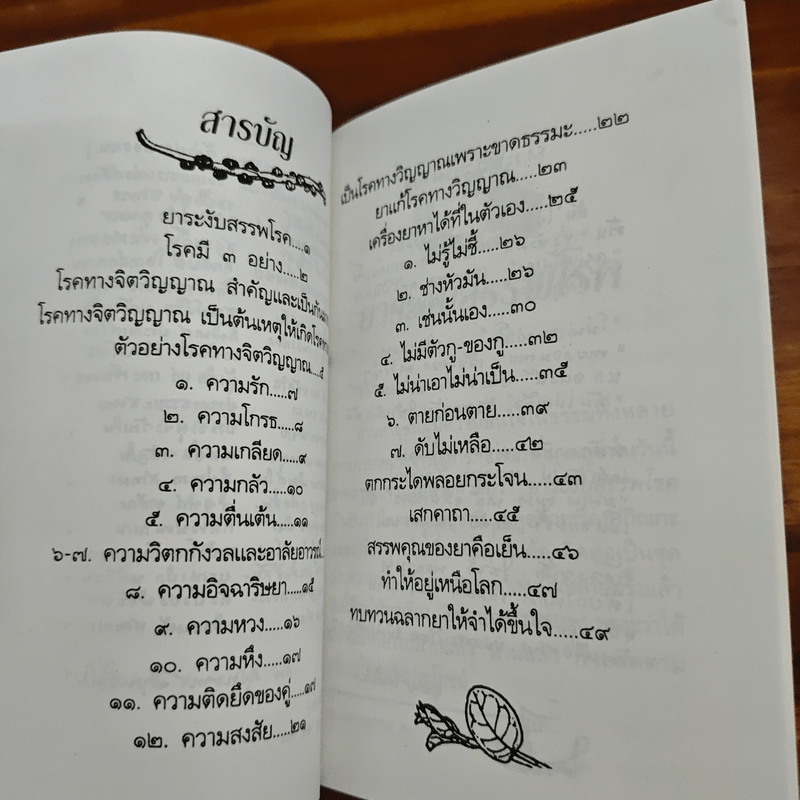 สารบัญ
ยาระงับสรรพโรค....๑
โรคมี ๓ อย่าง....๒
โรคทางจิตวิญญาณ สำคัญและเป็นกัน
โรคทางจิตวิญญาณ เป็นต้นเหตุให้เกิดโรค
ตัวอย่างโรคทางจิตวิญญาณ....๕
๑. ความรัก.....๗
๒. ความโกรธ.....๘
๓. ความเกลียด.....๙
๔. ความกลัว.....๑๐
๕. ความตื่นเต้น.....๑๑
๖-๗. ความวิตกกังวลและอาลัยอาวรณ์
๘. ความอิจฉาริษยา.....๑๕
๙. ความหวง.....๑๖
๑๐. ความหึง.....๑๗
๑๑. ความติดยึดของคู่.....๑๗
๑๒. ความสงสัย.....๒๑
เป็นโรคทางวิญญาณเพราะขาดธรรมะ.....๒๒
ยาแก้โรคทางวิญญาณ.....๒๓
เครื่องยาหาได้ที่ในตัวเอง.....๒๕
๑. ไม่รู้ไม่ชี้.....๒๖
๒. ช่างหัวมัน.....๒๖
๓. เช่นนั้นเอง.....๓๐
๔. ไม่มีตัวกู-ของกู.....๓๒
๕. ไม่น่าเอาไม่น่าเป็น.....๓๕
๖. ตายก่อนตาย.....๓๙
๗. ดับไม่เหลือ.....๔๒
ตกกระไดพลอยกระโจน.....๔๓
เสกคาถา.....๔๕
สรรพคุณของยาคือเย็น.....๔๖
ทำให้อยู่เหนือโลก.....๔๗
ทบทวนฉลากยาให้จำได้ขึ้นใจ.....๔๙